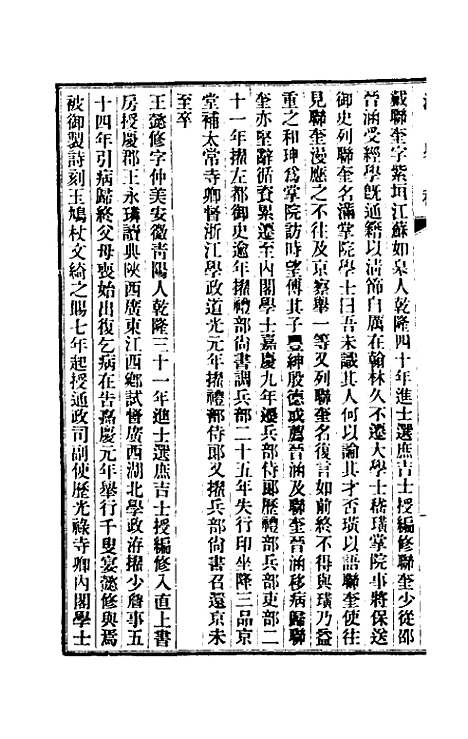 戴聯奎字紫垣江蘇如皋人乾隆四十年進士選庶吉士授編修聯奎少從邵
晉涵受經學旣通籍以淸節自厲在翰林久不遷大學士嵇璜掌院事將保送
御史列聯奎名滿掌院學士曰吾未識其人何以論其才否璜以語聯奎使往
見聯奎漫應之不往及京察舉一等又列聯奎名復言如前終不得與璜乃益
重之和珅爲掌院訪時望傅其子豐紳殷德或薦晉涵及聯奎晉涵移病歸聯
奎亦堅辭循資累遷至內閣學士嘉慶九年遷兵部侍郞歷禮部兵部吏部二
十一年擢左都御史逾年擢禮部尙書調兵部二十五年失行印坐降三品京
堂補太常寺卿督浙江學政道光元年擢禮部侍郞又擢兵部尙書召還京未
至卒
王懿修字仲美安徽靑陽人乾隆三十一年進士選庶吉士授編修入直上書
房授慶郡王永璘讀典陝西廣東江西鄕試督廣西湖北學政洊擢少詹事五
十四年引病歸終父母喪始出復乞病在告嘉慶元年舉行千叟宴懿修與焉
被御製詩刻玉鳩杖文綺之賜七年起授通政司副使歷光祿寺卿內閣學士